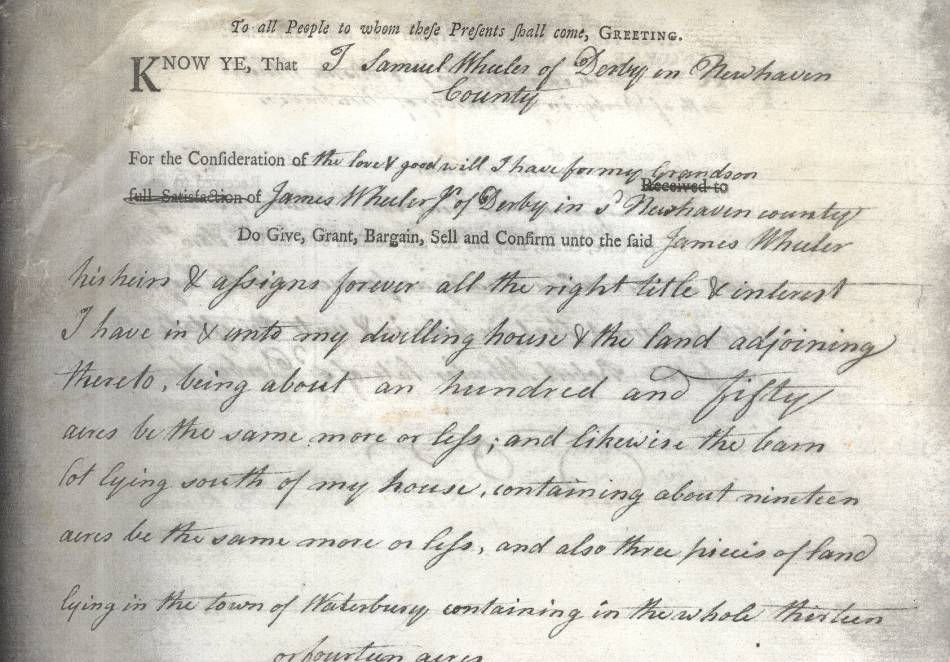 To all People to whom theſe Preſents ſhall come, GREETING.
KNOW YE, That I Samuel Wheeler of Derby in Newhaven
County
For the Conſideration of the love & good will I have for my Grandson
Received to
full Satisfaction of James Wheeler Jr of Derby in sd Newhaven county
Do Give, Grant, Bargain, Sell and Confirm unto the ſaid James Wheeler
his heirs & aſsigns forever all the right title & interest
I have in & unto my dwelling house & the land adjoining
thereto, being about an hundred and fifty
acres be the same more or leſs; and likewise the barn
lot lying south of my house, containing about nineteen
acres be the same more or leſs, and also three pieces of land
lying in the town of Waterbury containing in the whole thirteen
or fourteen acres